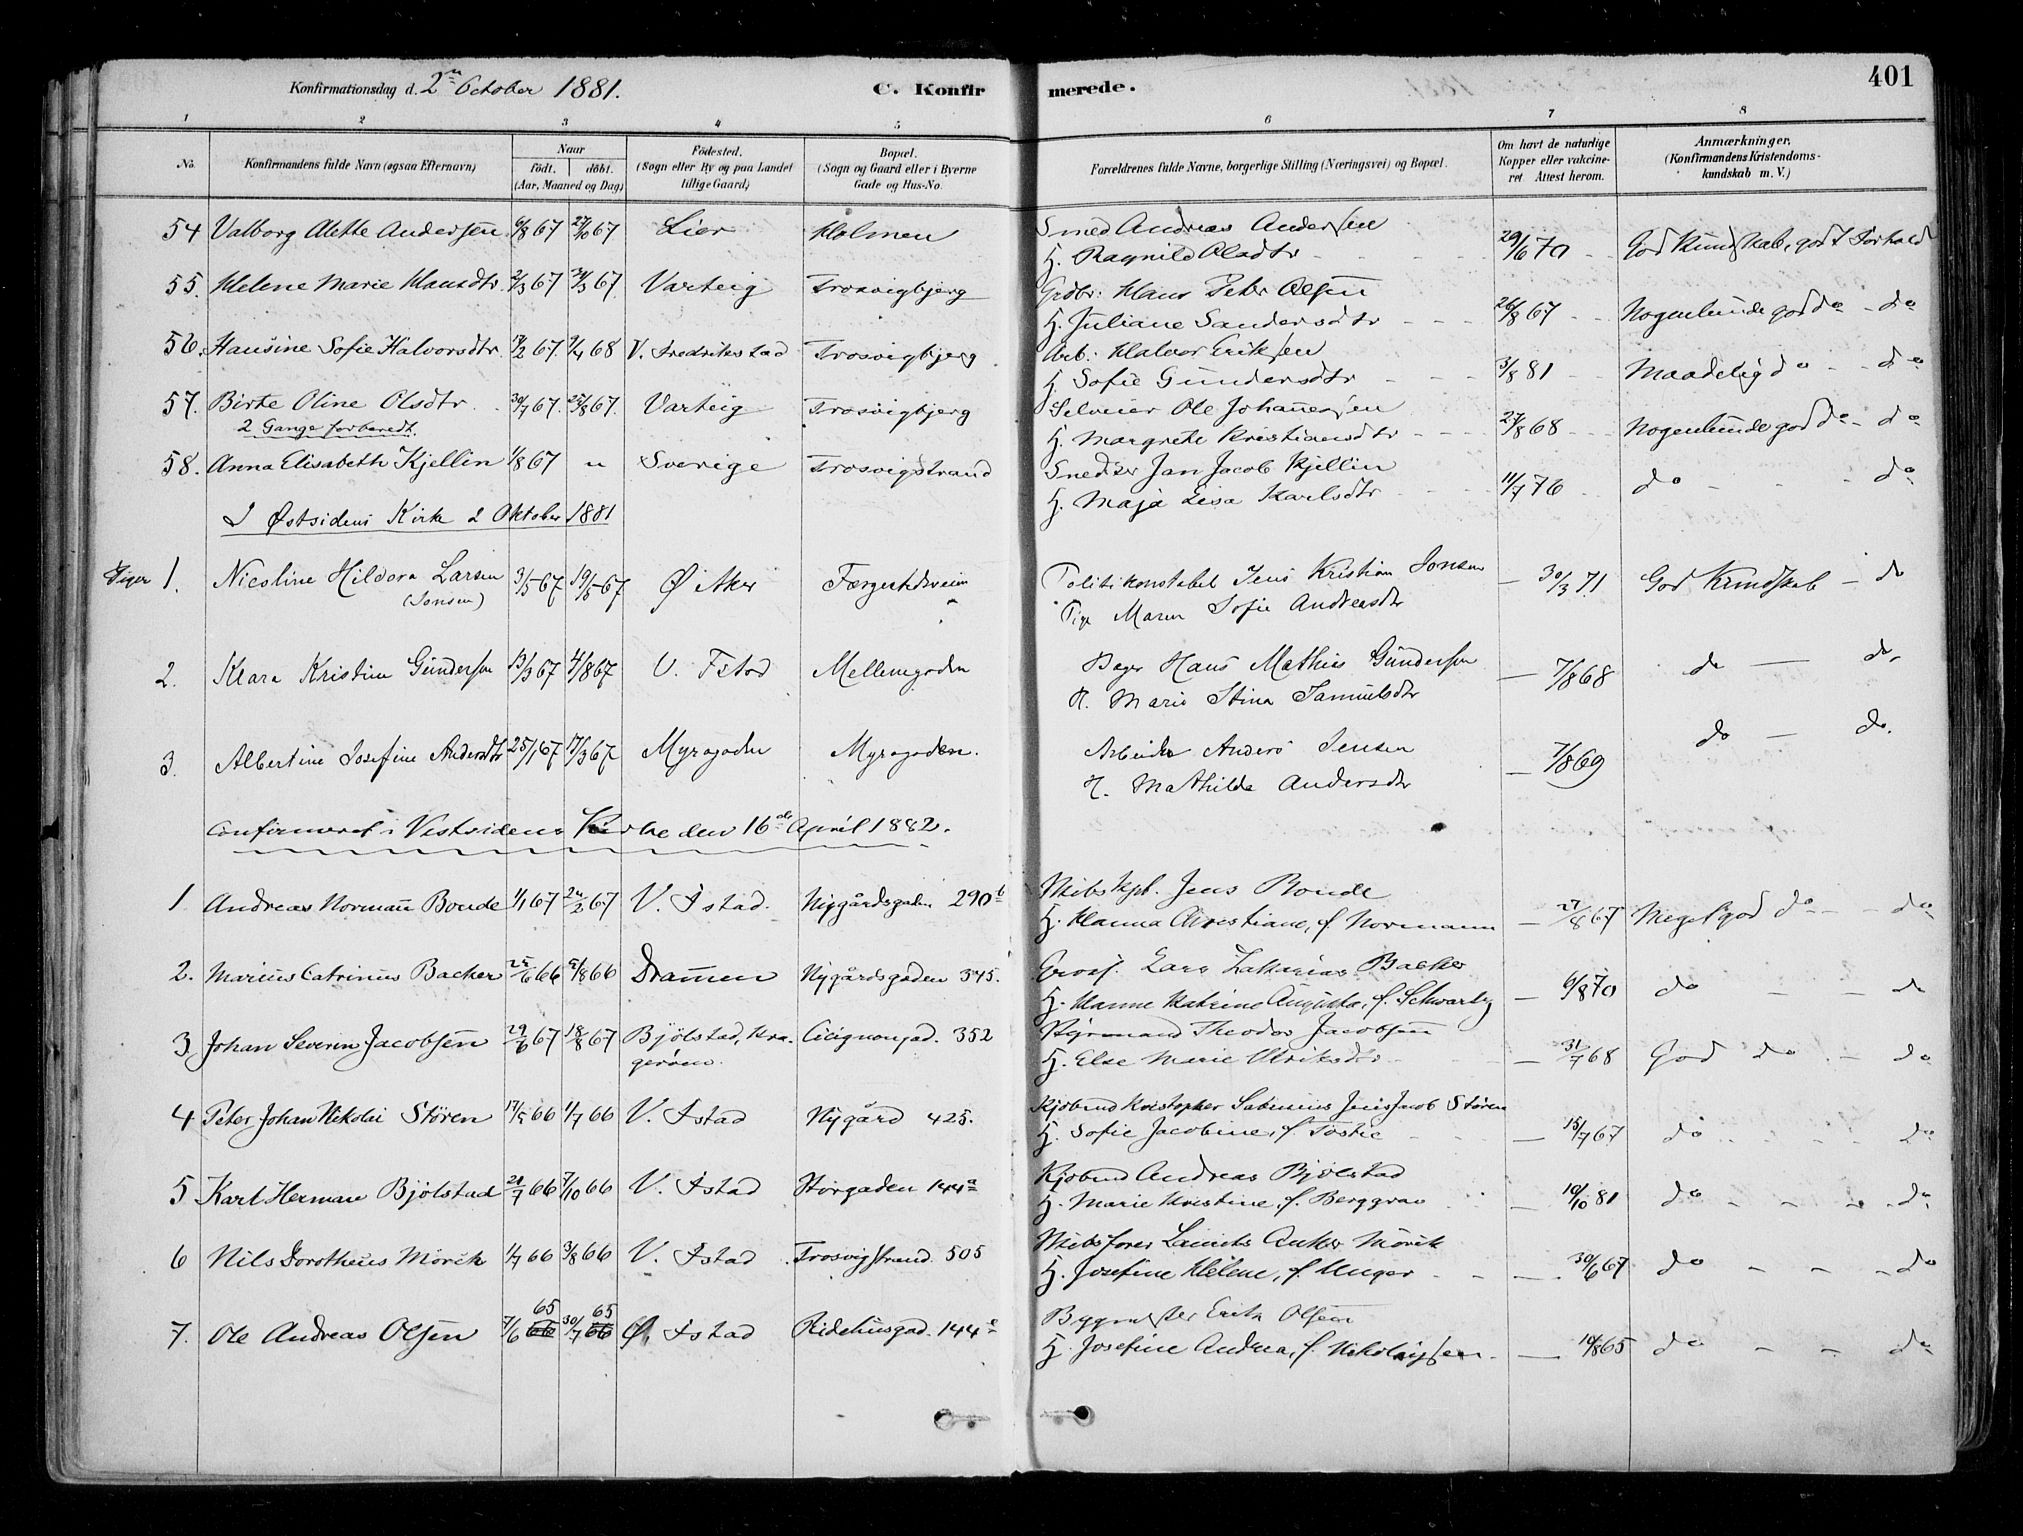 Konfirmationsdag d. 2den October 1881. C. Konfirmerede. 401
1 2 3 4 5 6 7 8
No. Konfirmandens fulde Navn (ogsaa Efternavn) Naar født. døbt. (Aar, Maaned og Dag) Fødested. (Sogn eller By og paa Landet tillige Gaard) Bopæl. (Sogn og Gaard eller i Byerne Gade og Hus-No. Forældrenes fulde Navne, borgerlige Stilling (Næringsvei) og Bopæl. Om havt de naturlige Kopper eller vakcineret. Attest herom. Anmærkninger. (Konfirmandens Kristendomskundskab m. V.)
54 Valborg Alette Andersen 6/8 67 27/10 67 Lier Holmen Smed Andreas Andersen
H. Ragnild Olsdtr 29/6 70 God Kundskab, godt Forhold
55. Helene Marie Hansdtr 2/3 67 31/3 67. Varteig Trosvigbjerg Grdbr: Hans Peter Olsen
H. Juliane Sandersdtr 26/8 67 Nogenlunde god do do
56. Hansine Sofie Halvorsdtr 17/2 67. 7/4 68 V. Fredrikstad Trosvigbjerg Arb: Halvor Eriksen
H. Sofie Gundersdtr 3/8 81 Maadelig do do
57. Birte Oline Olsdtr. 30/7 67. 25/8 67. Varteig Trosvigbjerg Selveier Ole Johannesen
2 Gange forberedt. H. Margrete Kristiansdtr 27/8 68 Nogenlunde god do do
58. Anna Elisabeth Kjellin 1/8 67 " Sverige Trosvigstrand Snedker Jan Jacob Kjellin
H. Maja Lisa Karlsdtr 11/7 76 do do
I Østsidens Kirke 2 Oktober 1881
Piger 1. Nicoline Hildora Larsen 3/5 67 19/5 67 Ø Aker Færgestedsveien Politikonstabel Jens Kristian Jonsen
(Jonsen) Pige Maren Sofie Andreasdtr 30/3 71 God Kundskab do
2. Klara Kristine Gundersen 13/3 67 4/8 67 V. Fstad Mellemgaden Bager Hans Mathies Gundersen
H. Marie Stina Samuelsdtr 7/8 68 do do
3. Albertine Josefine Andersdtr 25/1 67 17/3 67 Myragaden Myragaden. Arbeider Anders Jensen
H. Mathilde Andersdtr 7/8 69 do do.
Confirmeret i Vestsidens Kirke den 16de April 1882.
1 Andreas Normann Bonde 1/1 67 24/2 67 V. Fstad. Nygårdsgaden 290b Skibskpt. Jens Bonde
H. Hanna Christiane, f. Normann 27/8 67 Meget god do do
2. Marius Catrinus Backer 25/6 66 5/8 66 Dramen Nygårdsgaden 345. Gross. Lars Zakarias Backer
H. Hanne Katrine Augusta, f. Schwartz 6/8 70 do do
3. Johan Severin Jacobsen 29/6 67 18/8 67 Bjölstad, Kragerøen. Cicignongad. 352 Styrmand Theodor Jacobsen
H. Else Marie Ulriksdtr 31/7 68 God do do
4 Peter Johan Nikolai Stören 17/5 66 1/7 66 V. Fstad Nygård 425. Kjøbmd Kristopher Jens Jacob Stören
H. Sofie Jacobine, f. Tostie 15/7 67 do do
5 Karl Herman Bjölstad 21/7 66 7/10 66 V. Fstad Storgaden 144a Kjøbmd Andreas Bjölstad
H. Marie Kristine, f. Berggrav 10/10 81 do do
6 Nils Dorotheus Mörch 1/7 66 3/8 66 V. Fstad Trosvigstrand. 505 Skibsfører Laurits Anker Mörch
H. Josefine Helene, f. Unger 30/6 67 do do
7. Ole Andreas Olsen 7/6 65 30/7 65 Ø. Fstad Ridehusgad. 144e Byggmester Erik Olsen
H. Josefine Andrea, f. Nikolaysen 10/8 65 do do